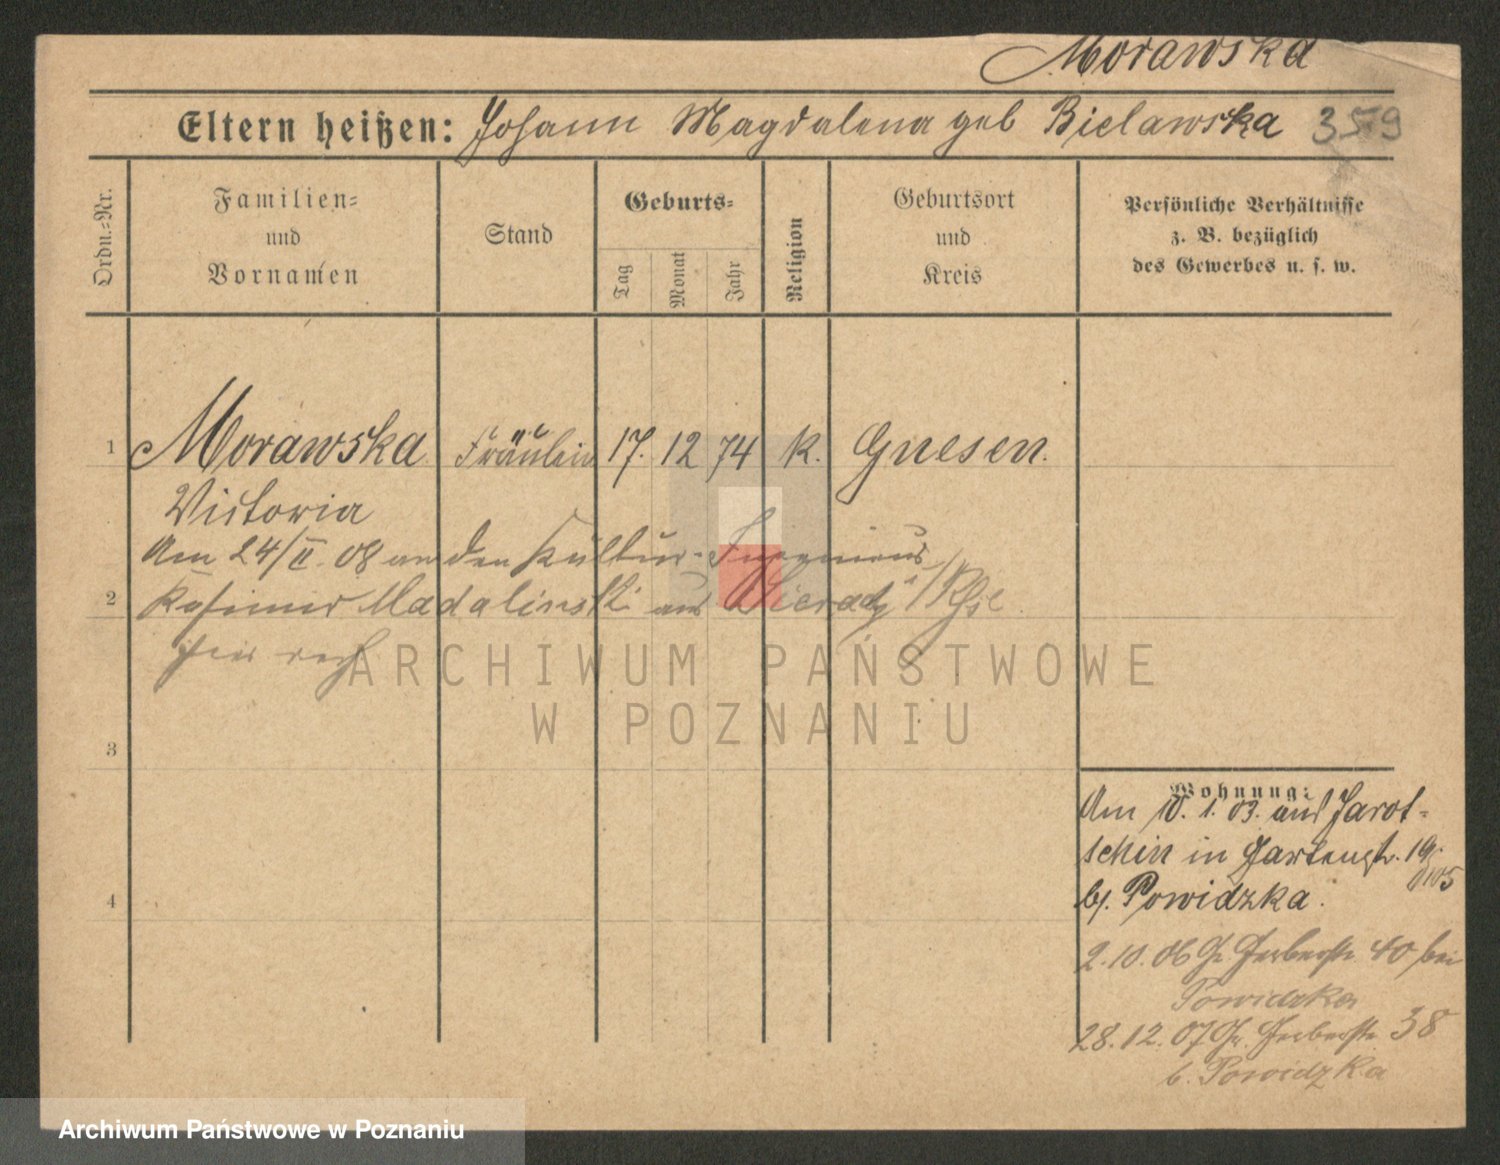 Morawska
Eltern heißen: Johann Magdalena geb Bielawska 359
Ordn.-Nr.
Familien-
und
Vornamen
Stand
Geburts-
Tag
Monat
Jahr
Religion
Geburtsort
und
Kreis
Persönliche Verhältnisse
z. B. bezüglich
des Gewerbes u. s. w.
1 Morawska Fräulein 17. 12 74 k. Gnesen.
Victoria
Am 24/II. 08 an den Kultur-Ingenieur
2 Kasimir Madalinski aus Sieradz i/
ARCHIWUM PAŃSTWOWE
W POZNANIU
3
4
Wohnung:
Am 10. 1. 03. aus Jarot-
schin in Gartenstr. 19.
bj. Powidzka.
2. 10. 06 Gr. Gerberstr. 40 bei
Powidzka
28. 12. 07 Gr. Gerberstr. 38
b. Powidzka
Archiwum Państwowe w Poznaniu